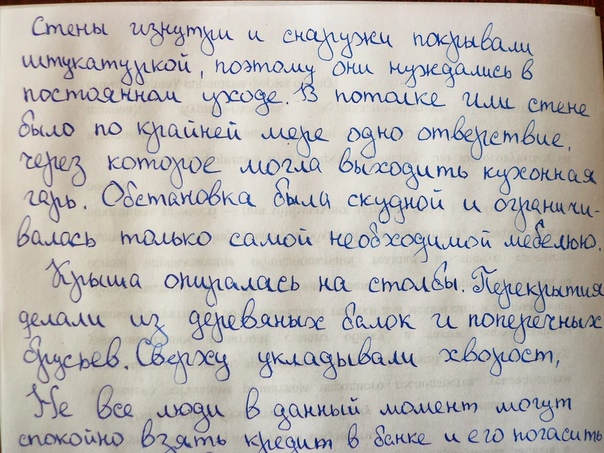 Стены изнутри и снаружи покрывали
штукатуркой, поэтому они нуждались в
постоянном уходе. В потолке или стене
было по крайней мере одно отверстие,
через которое могла выходить кухонная
гарь. Обстановка была скудной и ограничи-
валась только самой необходимой мебелью.
Крыша опиралась на столбы. Перекрытия
делали из деревяных балок и поперечных
брусьев. Сверху укладывали хворост,
Не все люди в данный момент могут
спокойно взять кредит в банке и его погасить